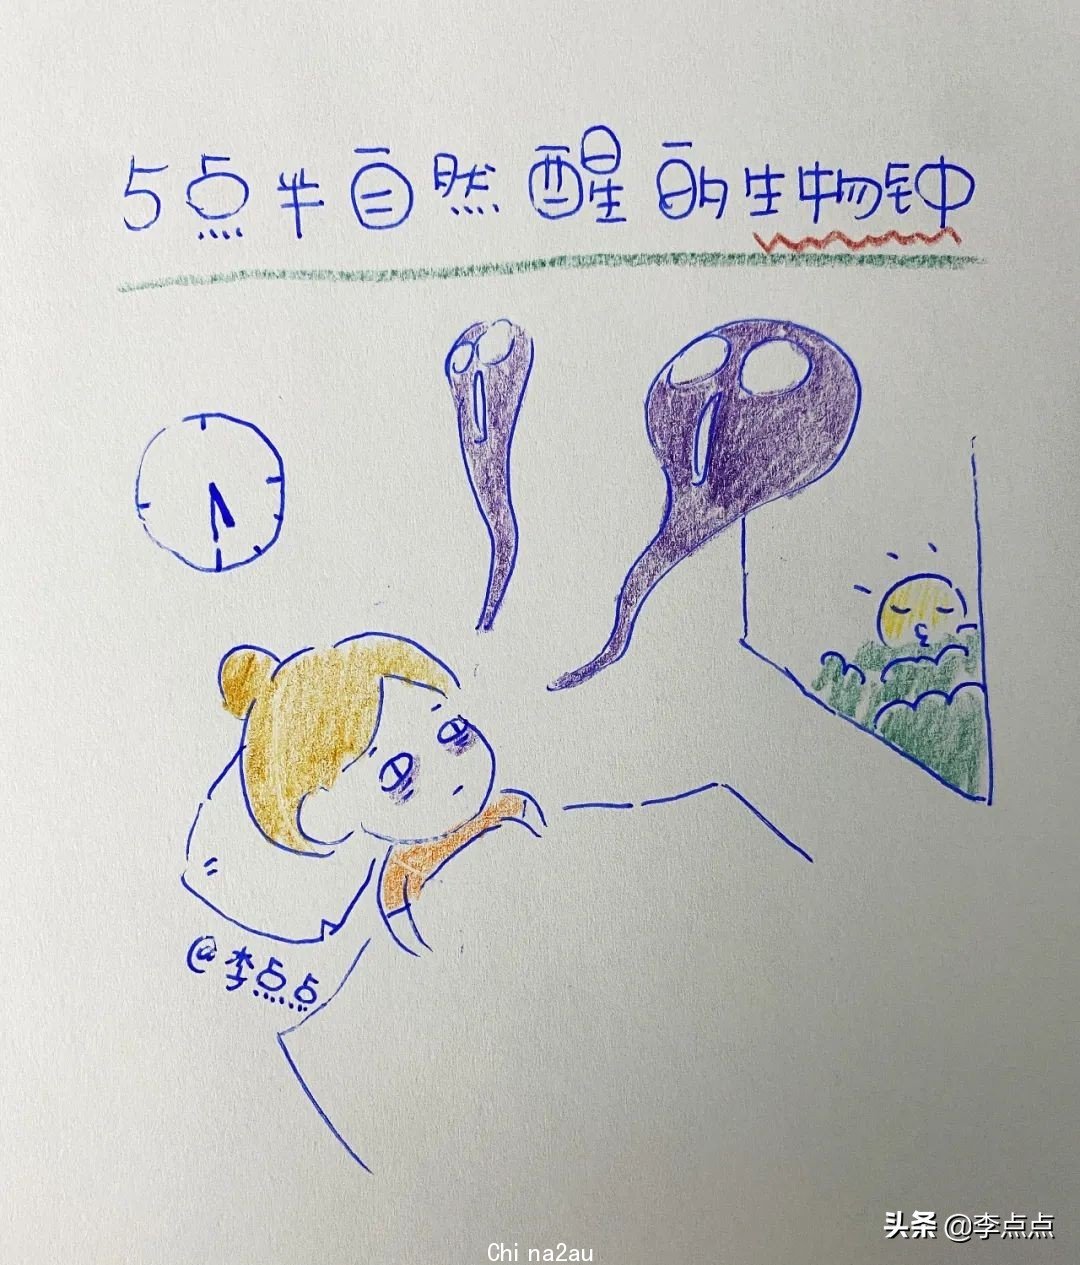 5点半自然醒的生物钟
@李点点
头条 @李点点
China2au